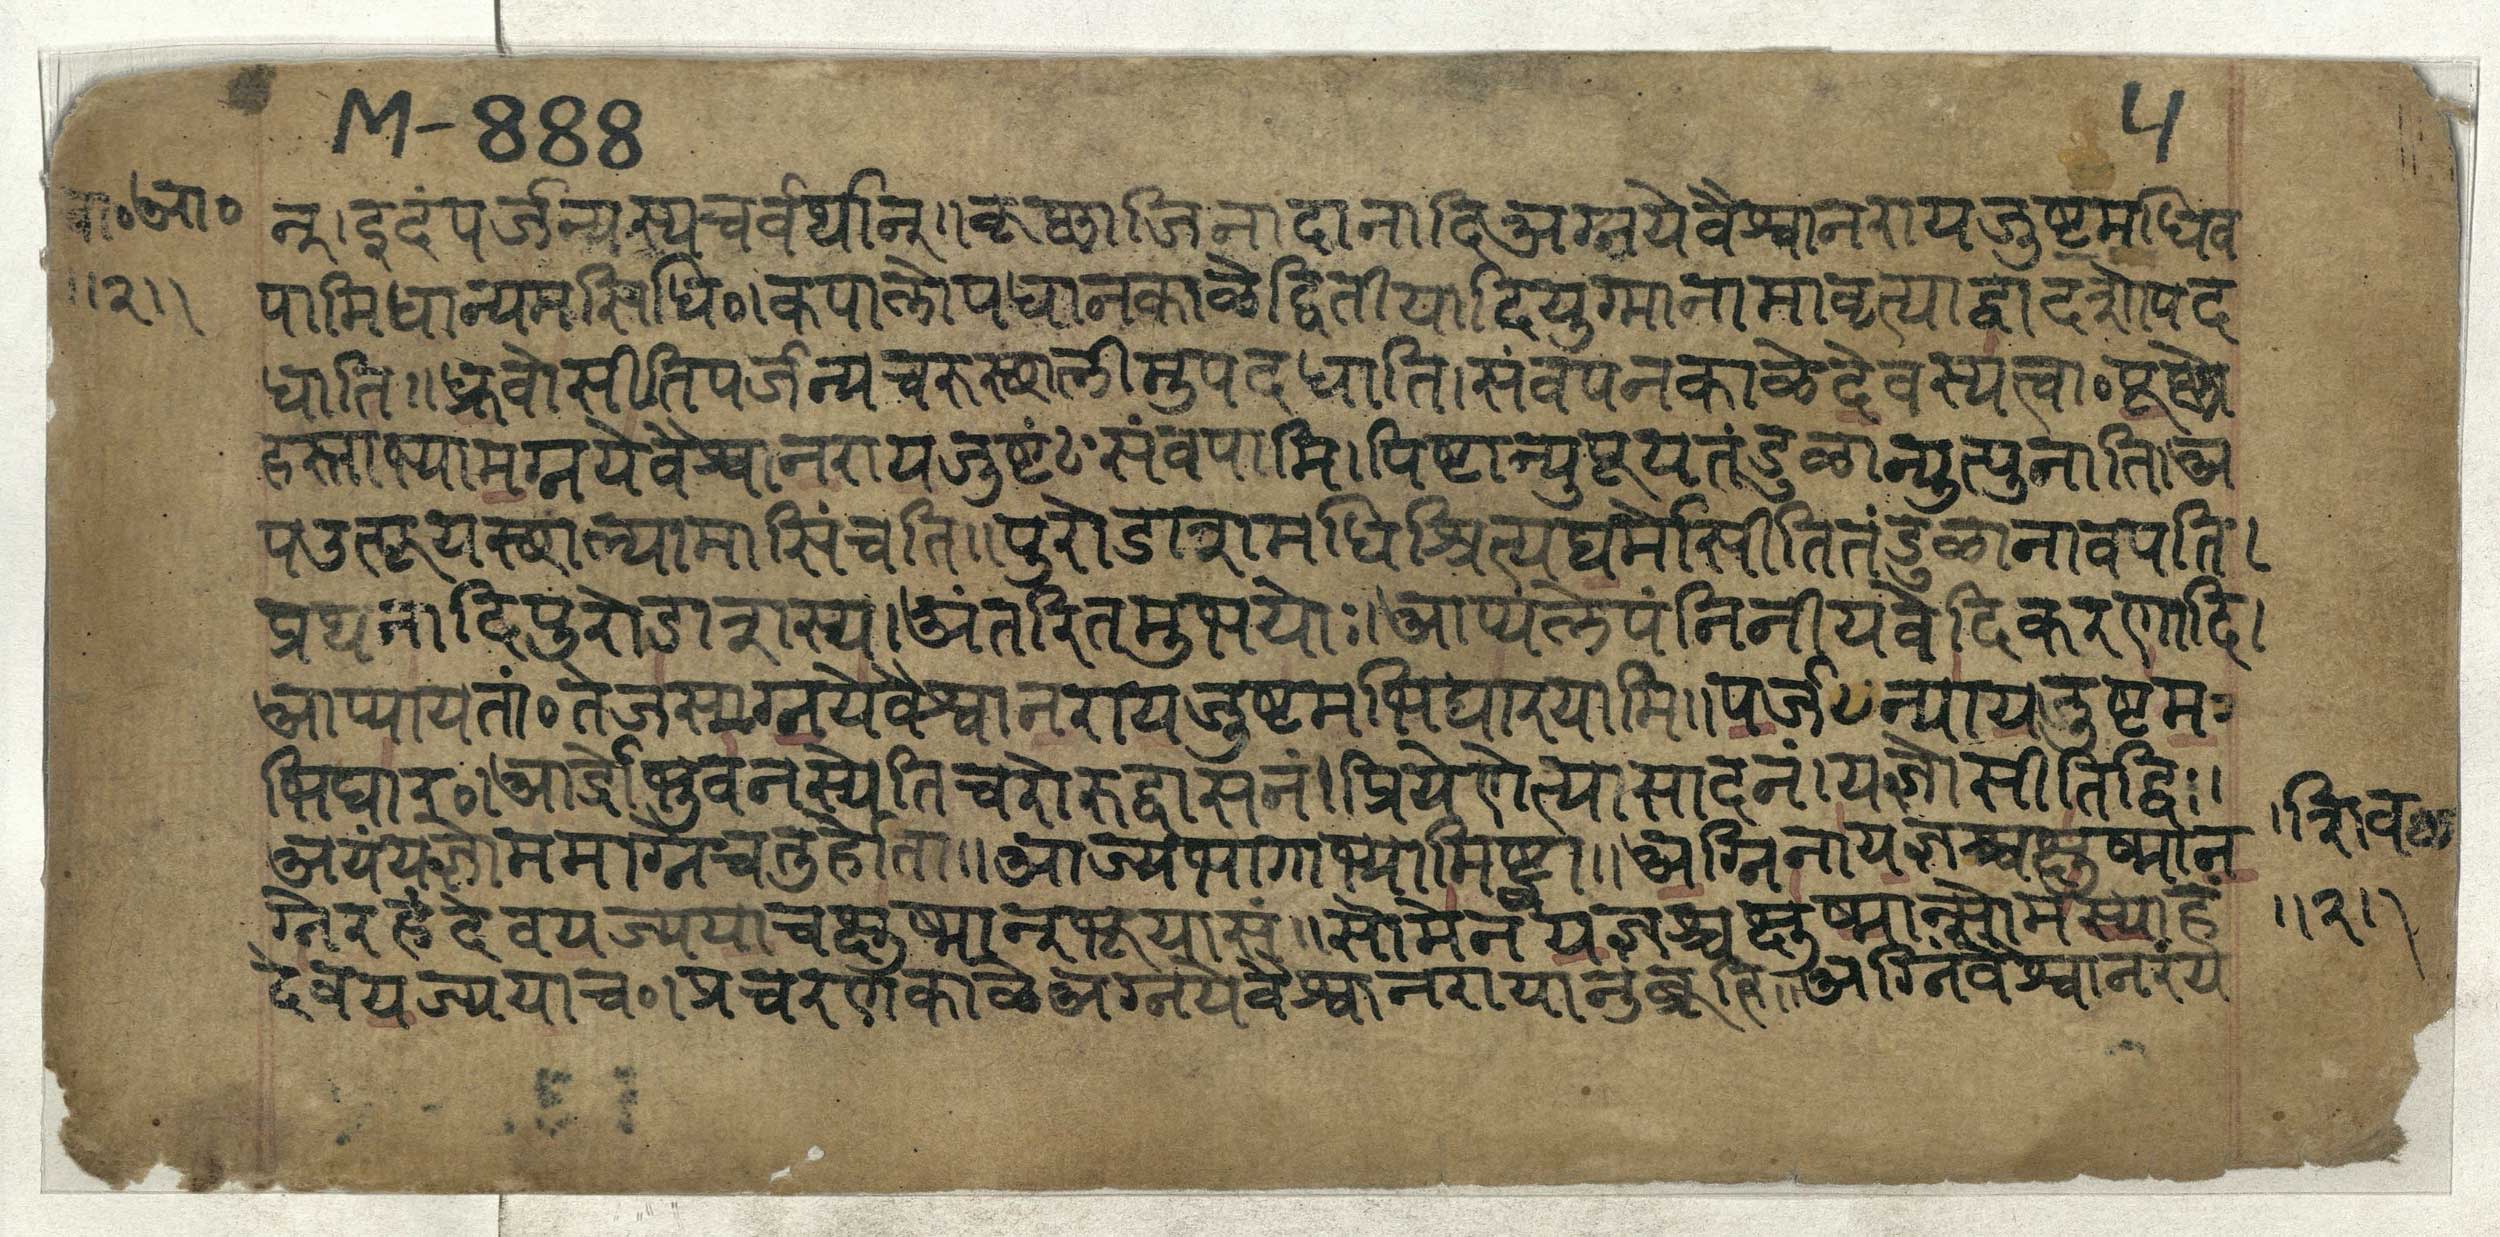 M-888
५
आ०
॥२॥
न् । इदंपर्जन्यस्यचर्वर्थान् ॥ कृष्णाजिनादानादिअग्नयेवैश्वानरायजुष्टमधिव
पामिधान्यमसिधि० । कपालोपधानकाळेद्वितीयादियुग्मानामावृत्याद्वादशोपद
धाति ॥ ध्रुवोसीतिपर्जन्यचरुस्थालीमुपदधाति । संवपनकाळेदेवस्यत्वा० पूष्णो
हस्ताभ्यामग्नयेवैश्वानरायजुष्टंसंवपामि । पिष्टान्युत्पूयतंडुळान्युत्पुनाति । अ
पउत्पूयस्थाल्यामासिंचति ॥ पुरोडाशमधिश्रित्यघर्मोसीतितंडुळानावपति ।
प्रथनादिपुरोडाशस्य । अंतरितमुभयोः । आप्यलेपंनिनीयवेदिकरणादि ।
आप्यायतां० तेजसाग्नयेवैश्वानरायजुष्टमभिघारयामि ॥ पर्जन्यायजुष्टम
भिघार० । आर्द्रोभुवनस्येतिचरोरुद्वासनं । प्रियेणेत्यासादनं । यज्ञोसीतिद्विः ।
अयंयज्ञोममाग्नेचतुर्होता ॥ आज्यभागाभ्यामिष्ट्वा ॥ अग्निनायज्ञश्चक्षुष्मान
ग्नेरहंदेवयज्ययाचक्षुष्मान्भूयासं ॥ सोमेनयज्ञश्चक्षुष्मान्सोमस्याहं
देवयज्ययाच० । प्रचरणकाळेअग्नयेवैश्वानरायानुब्रूहि ॥ अग्निंवैश्वानरंय
॥२॥